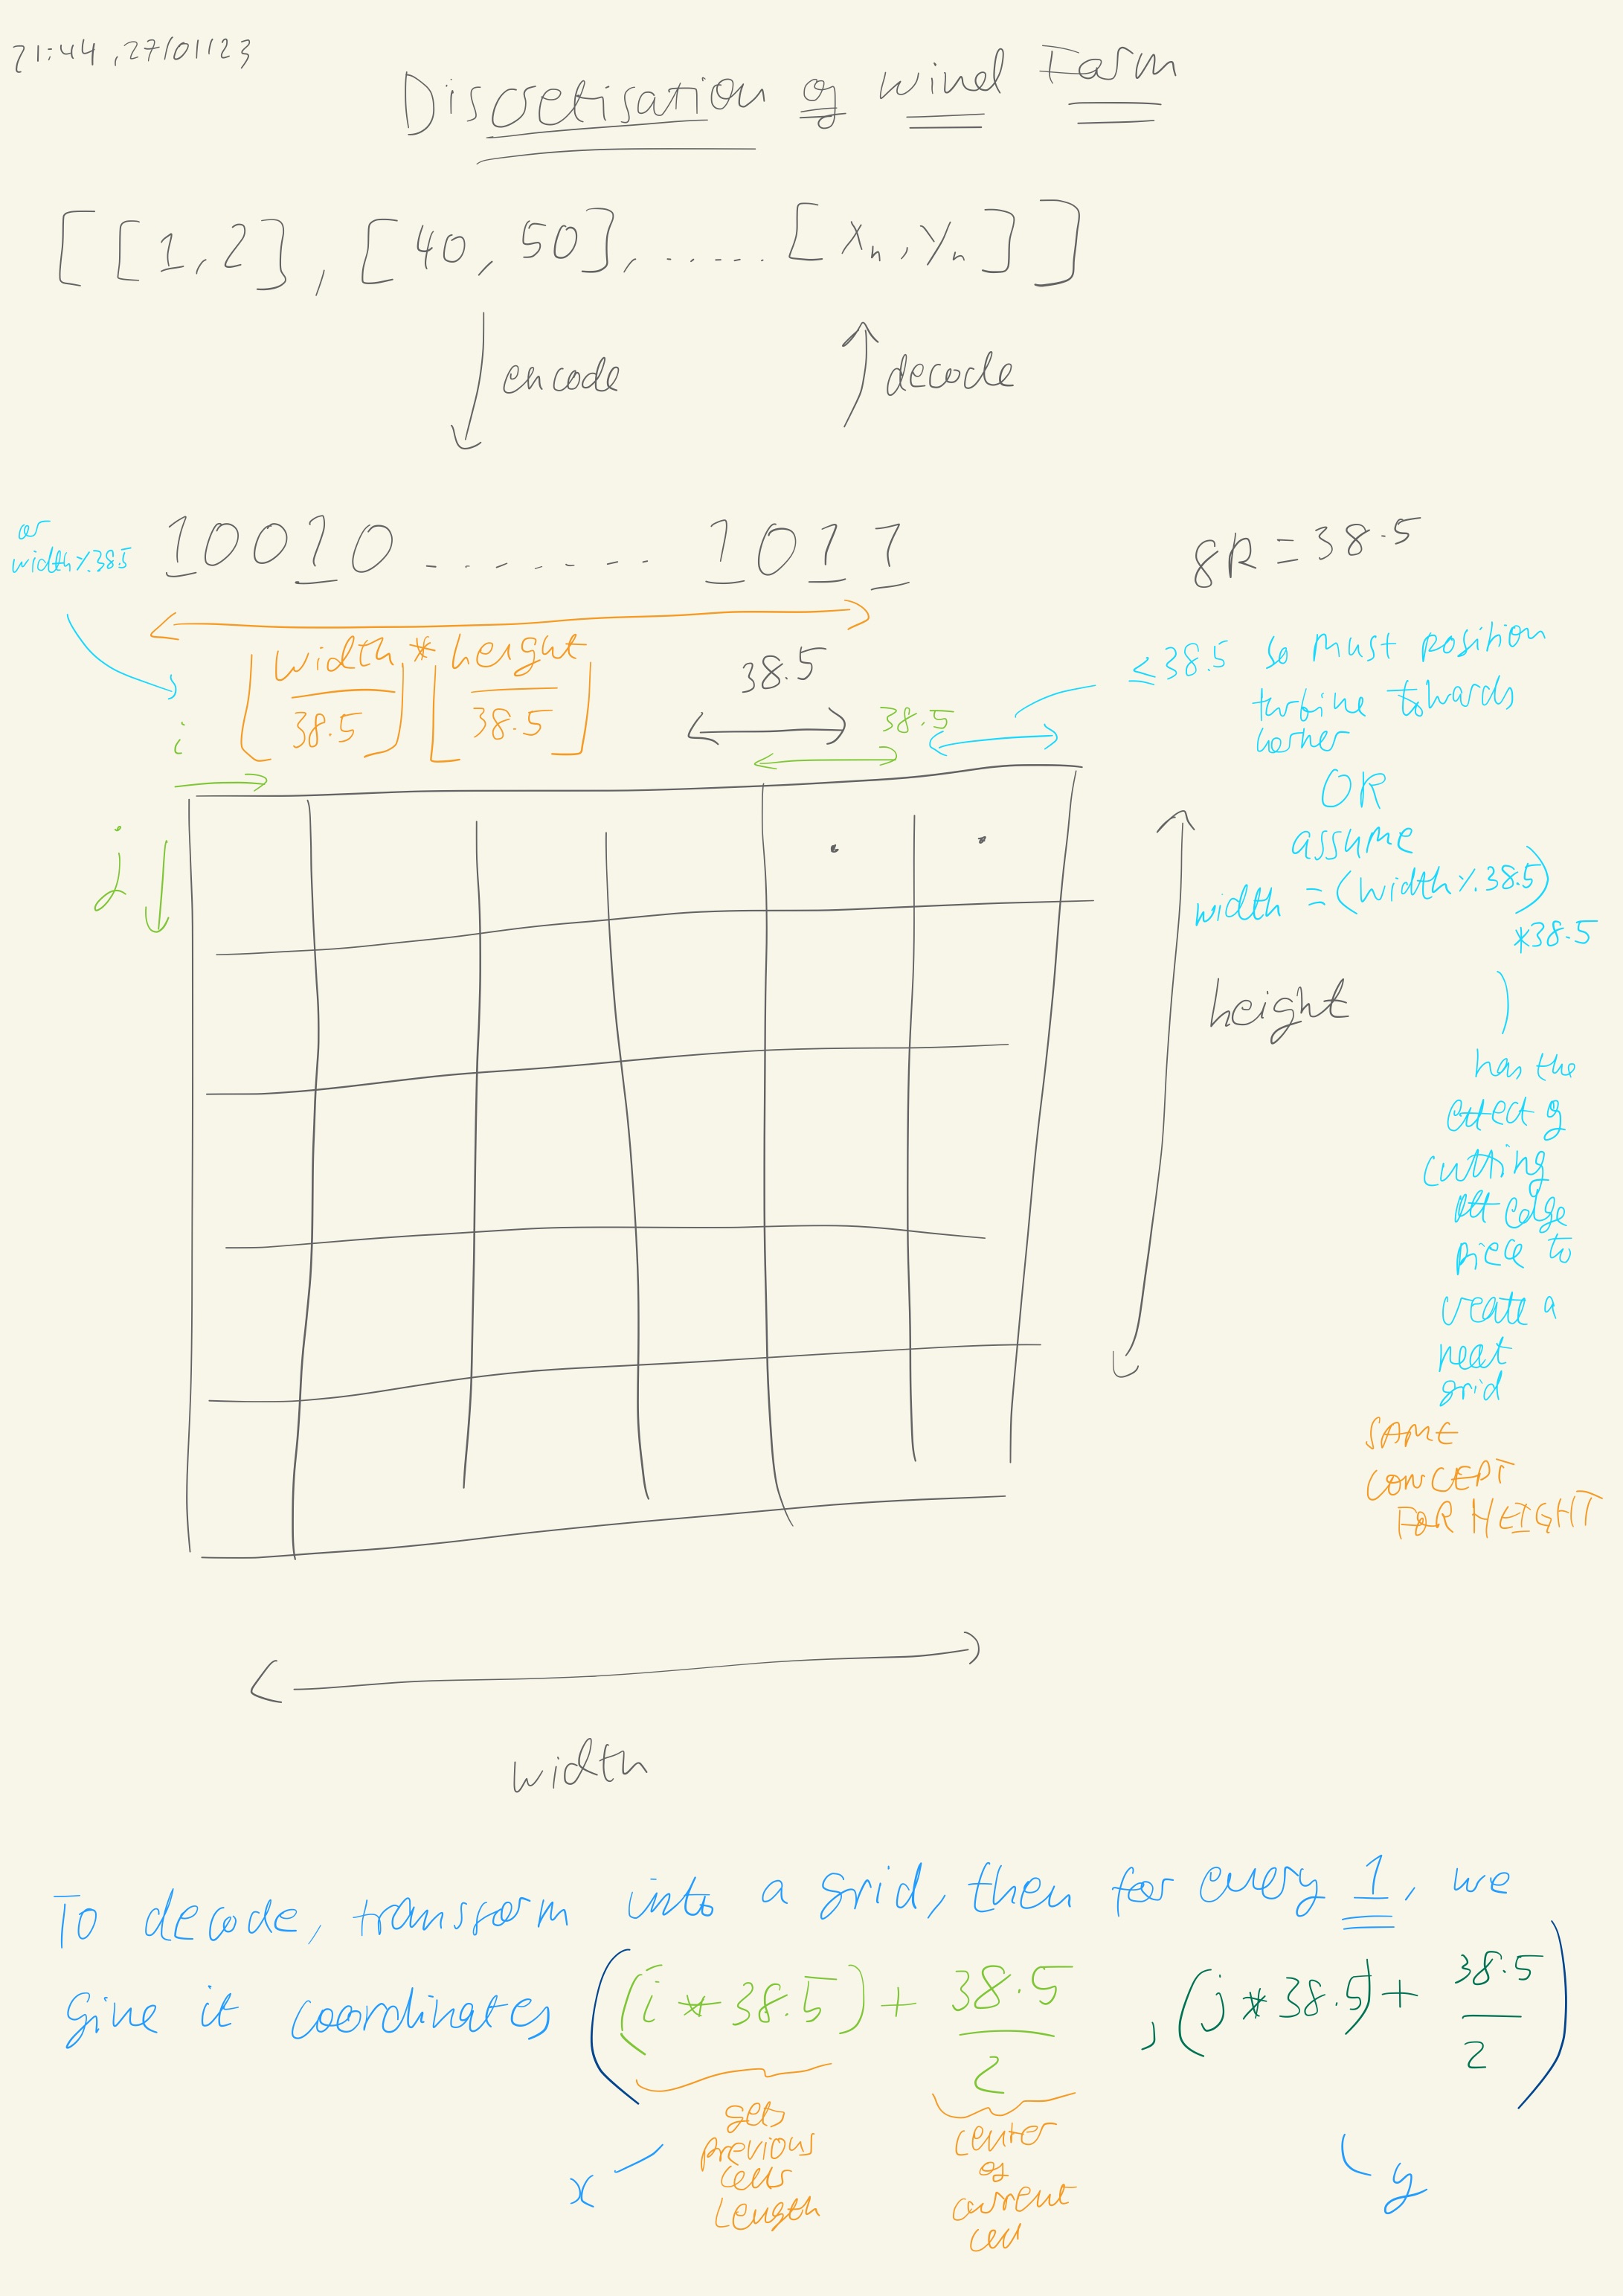 21:44, 27/01/23
Discretisation of wind Farm
[[1,2], [40, 50], ..... [xn, yn]]
encode
decode
or
width%38.5
10010 . . . . . . . 1011
8R = 38.5
⌊width/38.5⌋ * ⌊height/38.5⌋
38.5
38.5
≤38.5 so must position
turbine towards
corner
OR
assume
width = (width%38.5)
*38.5
i
j
height
has the
effect of
cutting
off edge
piece to
create a
neat
grid
SAME
CONCEPT
FOR HEIGHT
width
To decode, transform into a grid, then for every 1, we
give it coordinates ((i * 38.5) + 38.5/2, (j * 38.5) + 38.5/2)
gets
previous
cells
Length
center
of
current
cell
x
y